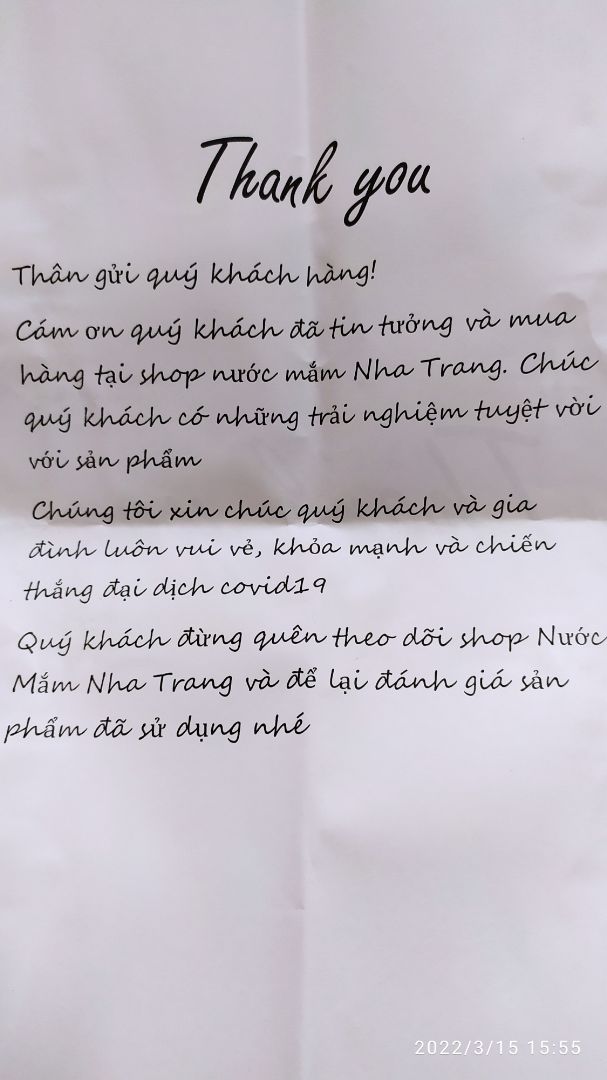 Thank you
Thân gửi quý khách hàng!
Cám ơn quý khách đã tin tưởng và mua
hàng tại shop nước mắm Nha Trang. Chúc
quý khách có những trải nghiệm tuyệt vời
với sản phẩm
Chúng tôi xin chúc quý khách và gia
đình luôn vui vẻ, khỏa mạnh và chiến
thắng đại dịch covid19
Quý khách đừng quên theo dõi shop Nước
Mắm Nha Trang và để lại đánh giá sản
phẩm đã sử dụng nhé
2022/3/15 15:55